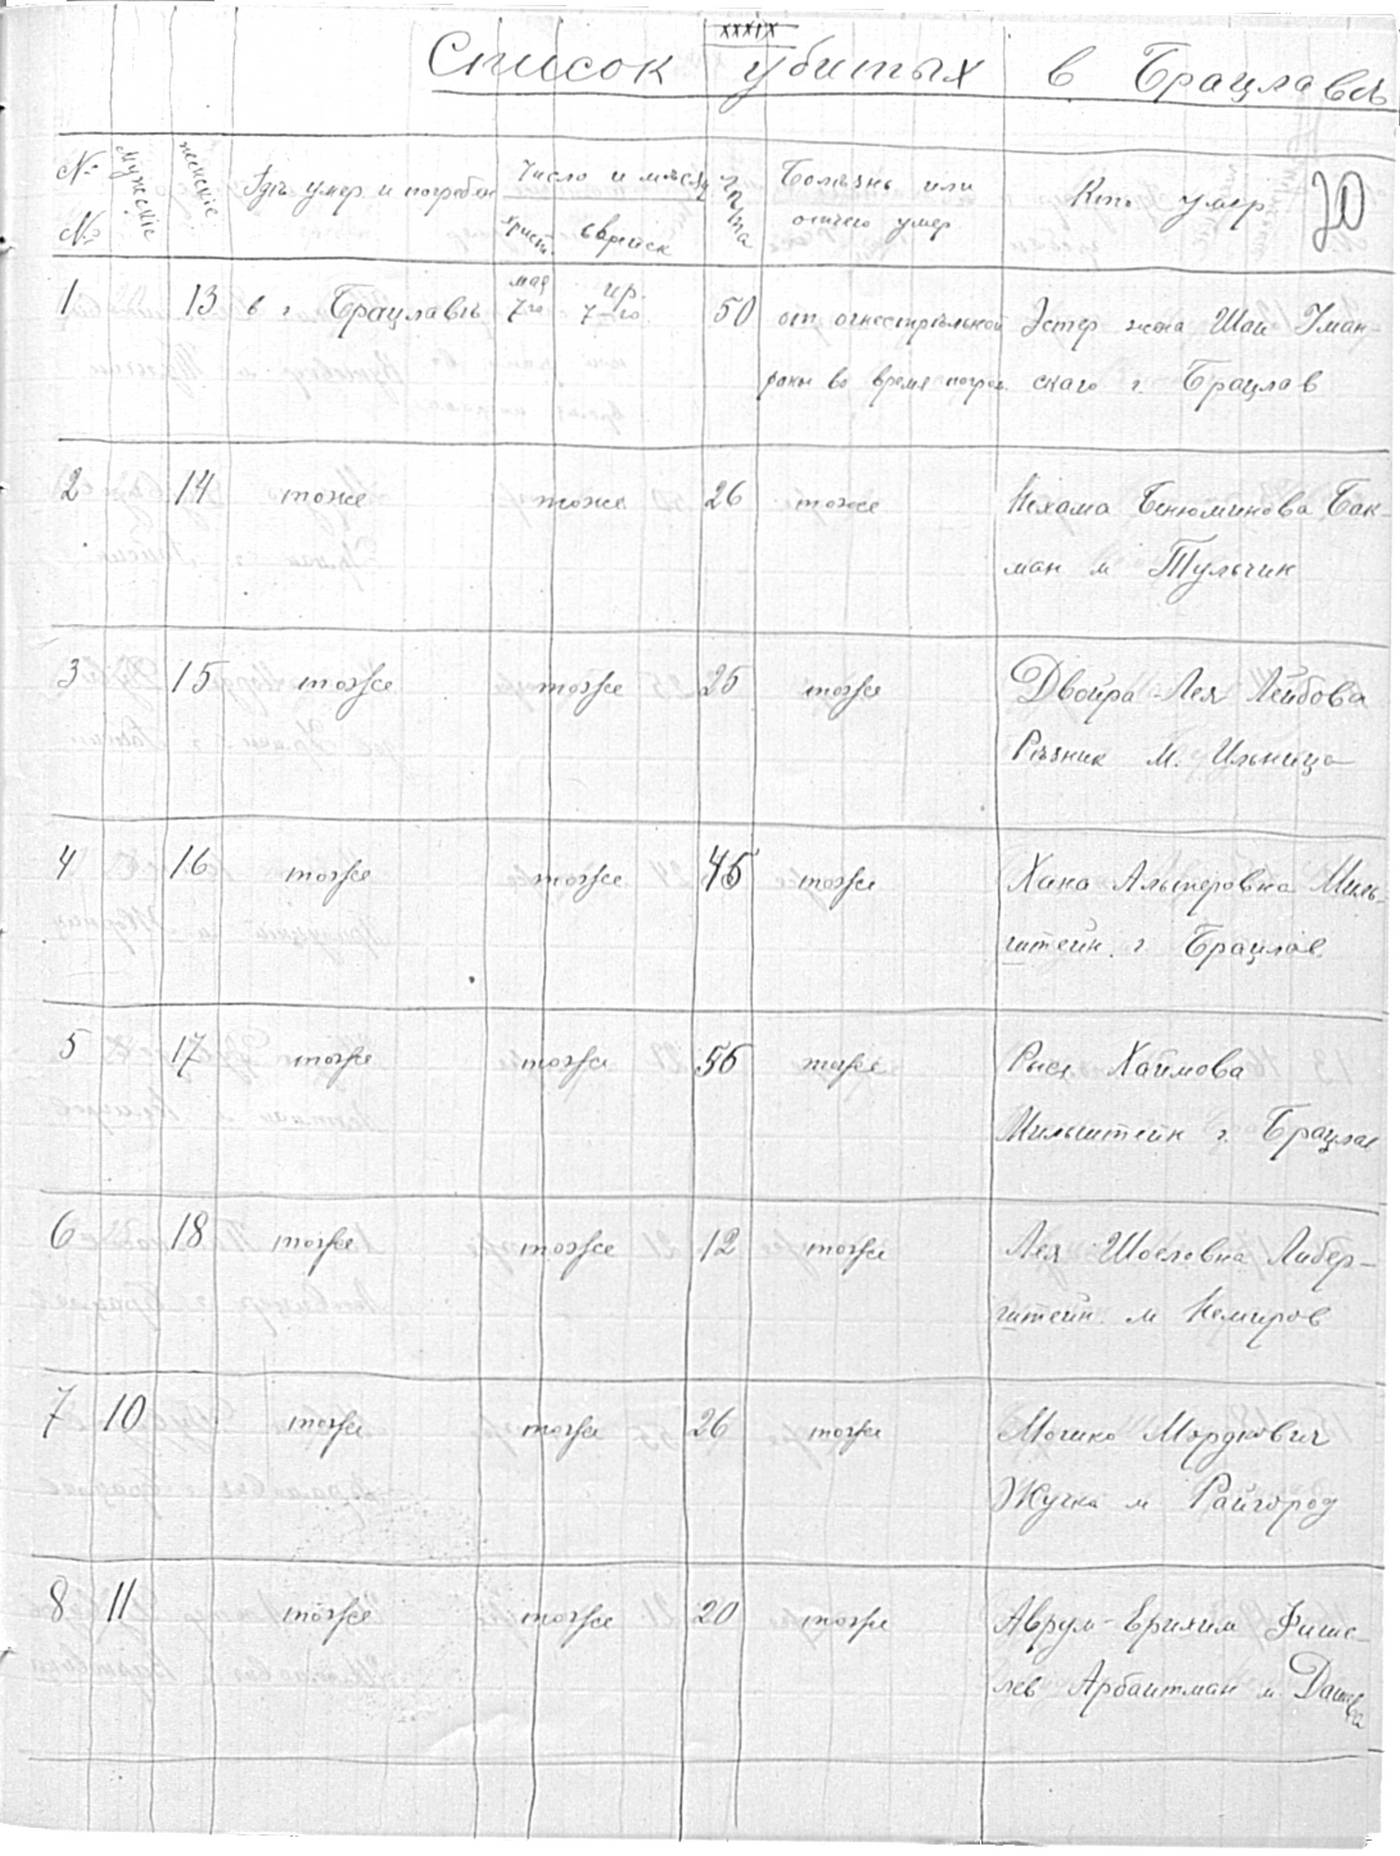 XXXIX
Список убитых в Брацлавѣ
№ № Мужскіе женскіе Гдѣ умер. и погребен Число и мѣсяц христ. еврейск лѣта Болѣзнь или отчего умер Кто умер 20
1 13 в г. Брацлавѣ мая 7го ир. 7-го 50 от огнестрѣльной Эстер жена Шаи Уман-
раны во время погром. скаго г. Брацлав
2 14 тоже тоже 26 тоже Нехама Бенюминова Бак-
ман м Тульчин
3 15 тоже тоже 25 тоже Двойра-Лея Лейбова
Рѣзник м. Ильница
4 16 тоже тоже 45 тоже Хана Альтеровна Миль-
штейн. г. Брацлав
5 17 тоже тоже 56 тоже Рися Хаймова
Мильштейн г. Брацлав
6 18 тоже тоже 12 тоже Лея Шоеловна Либер-
штейн. м Немиров
7 10 тоже тоже 26 тоже Мошко Мордкович
Жучка м Райгород
8 11 тоже тоже 20 тоже Аврум-Ерихим Фише-
лев Арбаитман м. Дашев